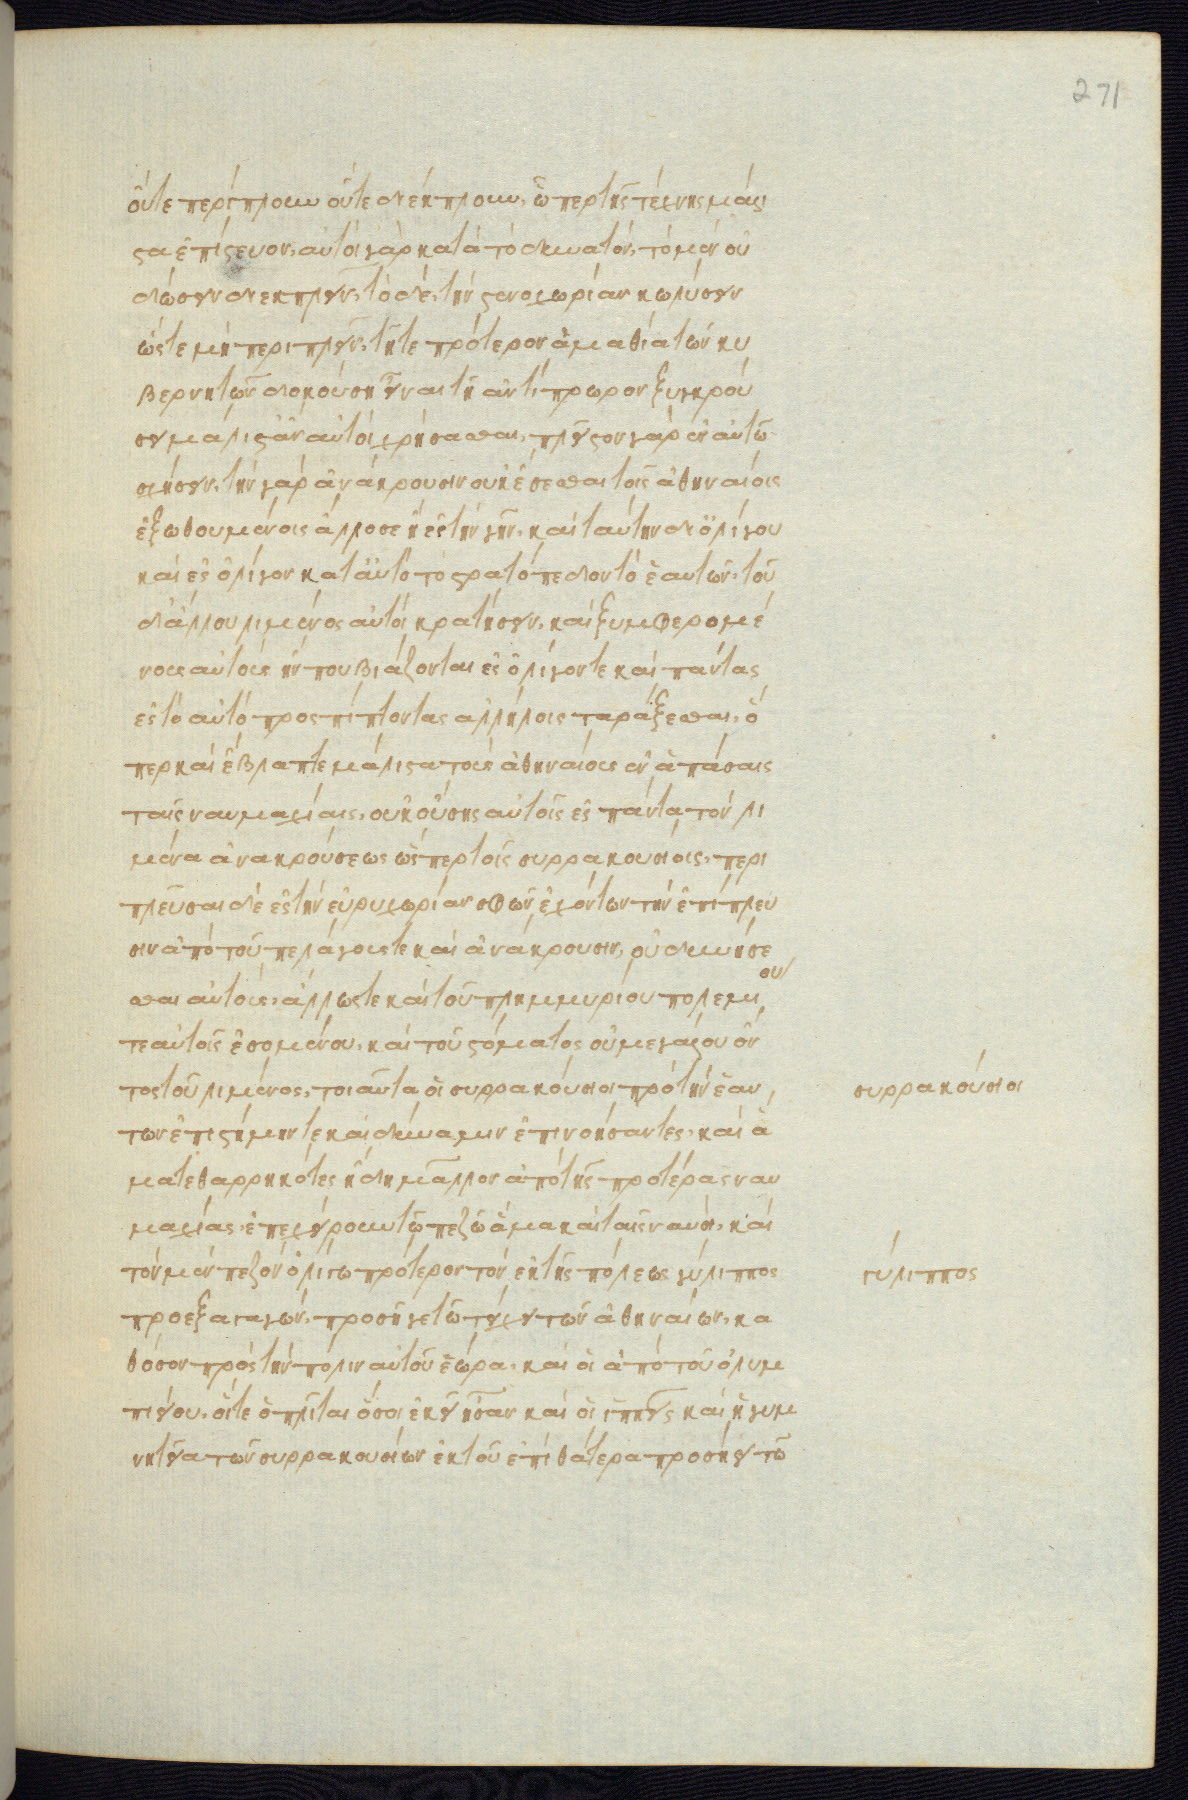 271
οὔτε περίπλουν οὔτε διέκπλουν, ᾧπερ τῆς τέχνης μάλι
στα ἐπίστευον, αὐτοὶ γὰρ κατὰ τὸ δυνατὸν, τὸ μὲν οὐ
δώσειν διεκπλεῖν, τὸ δὲ, τὴν στενοχωρίαν κωλύσειν
ὥστε μὴ περιπλεῖν, τῆτε πρότερον ἀμαθία τῶν κυ
βερνητῶν δοκούσῃ εἶναι τῇ ἀντίπρωρον ξυγκρού
σει μάλιστ' ἂν αὐτοὶ χρήσασθαι, πλεῖστον γὰρ ἐν αὐτῷ
σχήσειν, τὴν γὰρ ἀνάκρουσιν οὐκ ἔσεσθαι τοῖς ἀθηναίοις
ἐξωθουμένοις ἄλλοσε ἢ ἐς τὴν γῆν, καὶ ταύτην δι' ὀλίγου
καὶ ἐς ὀλίγον κατ' αὐτὸ τὸ στρατόπεδον τὸ ἑαυτῶν, τοῦ
δ' ἄλλου λιμένος αὐτοὶ κρατήσειν, καὶ ξυμφερομέ
νους αὐτοὺς ἤν που βιάζονται ἐς ὀλίγον τε καὶ πάντας
ἐς τὸ αὐτὸ προσπίπτοντας ἀλλήλοις ταράξεσθαι, ὅ
περ καὶ ἔβλαπτε μάλιστα τοὺς ἀθηναίους ἐν ἁπάσαις
ταῖς ναυμαχίαις, οὐκ οὔσης αὐτοῖς ἐς πάντα τὸν λι
μένα ἀνακρούσεως ὥσπερ τοῖς συρρακουσίοις, περι
πλεῦσαι δὲ ἐς τὴν εὐρυχωρίαν σφῶν ἐχόντων τὴν ἐπίπλευ
σιν ἀπὸ τοῦ πελάγους τε καὶ ἀνάκρουσιν, οὐ δυνήσε
σθαι αὐτοὺς, ἄλλως τε καὶ τοῦ πλημμυρίου πολεμίου
τε αὐτοῖς ἐσομένου, καὶ τοῦ στόματος οὐ μεγάλου ὄν
τος τοῦ λιμένος, τοιαῦτα οἱ συρρακούσιοι πρὸς τὴν ἑαυ
των ἐπιστήμην τε καὶ δύναμιν ἐπινοήσαντες, καὶ ἅ
μα τεθαρρηκότες ἤδη μᾶλλον ἀπὸ τῆς προτέρας ναυ
μαχίας, ἐπεχείρουν τῷ πεζῷ ἅμα καὶ ταῖς ναυσὶ, καὶ
τὸν μὲν πεζὸν ὀλίγῳ πρότερον τὸν ἐκ τῆς πόλεως γύλιππος
προεξαγαγὼν, προσῆγε τῷ τείχει τῶν ἀθηναίων, κα
θόσον πρὸς τὴν πόλιν αὐτοῦ ἑώρα, καὶ οἱ ἀπὸ τοῦ ὀλυμ
πιείου, οἵτε ὁπλῖται ὅσοι ἐκεῖ ἦσαν καὶ οἱ ἱππεῖς καὶ ἡ γυμ
νητεία τῶν συρρακουσίων ἐκ τοῦ ἐπὶ θάτερα προσῄει τῷ
συρρακούσιοι
γύλιππος